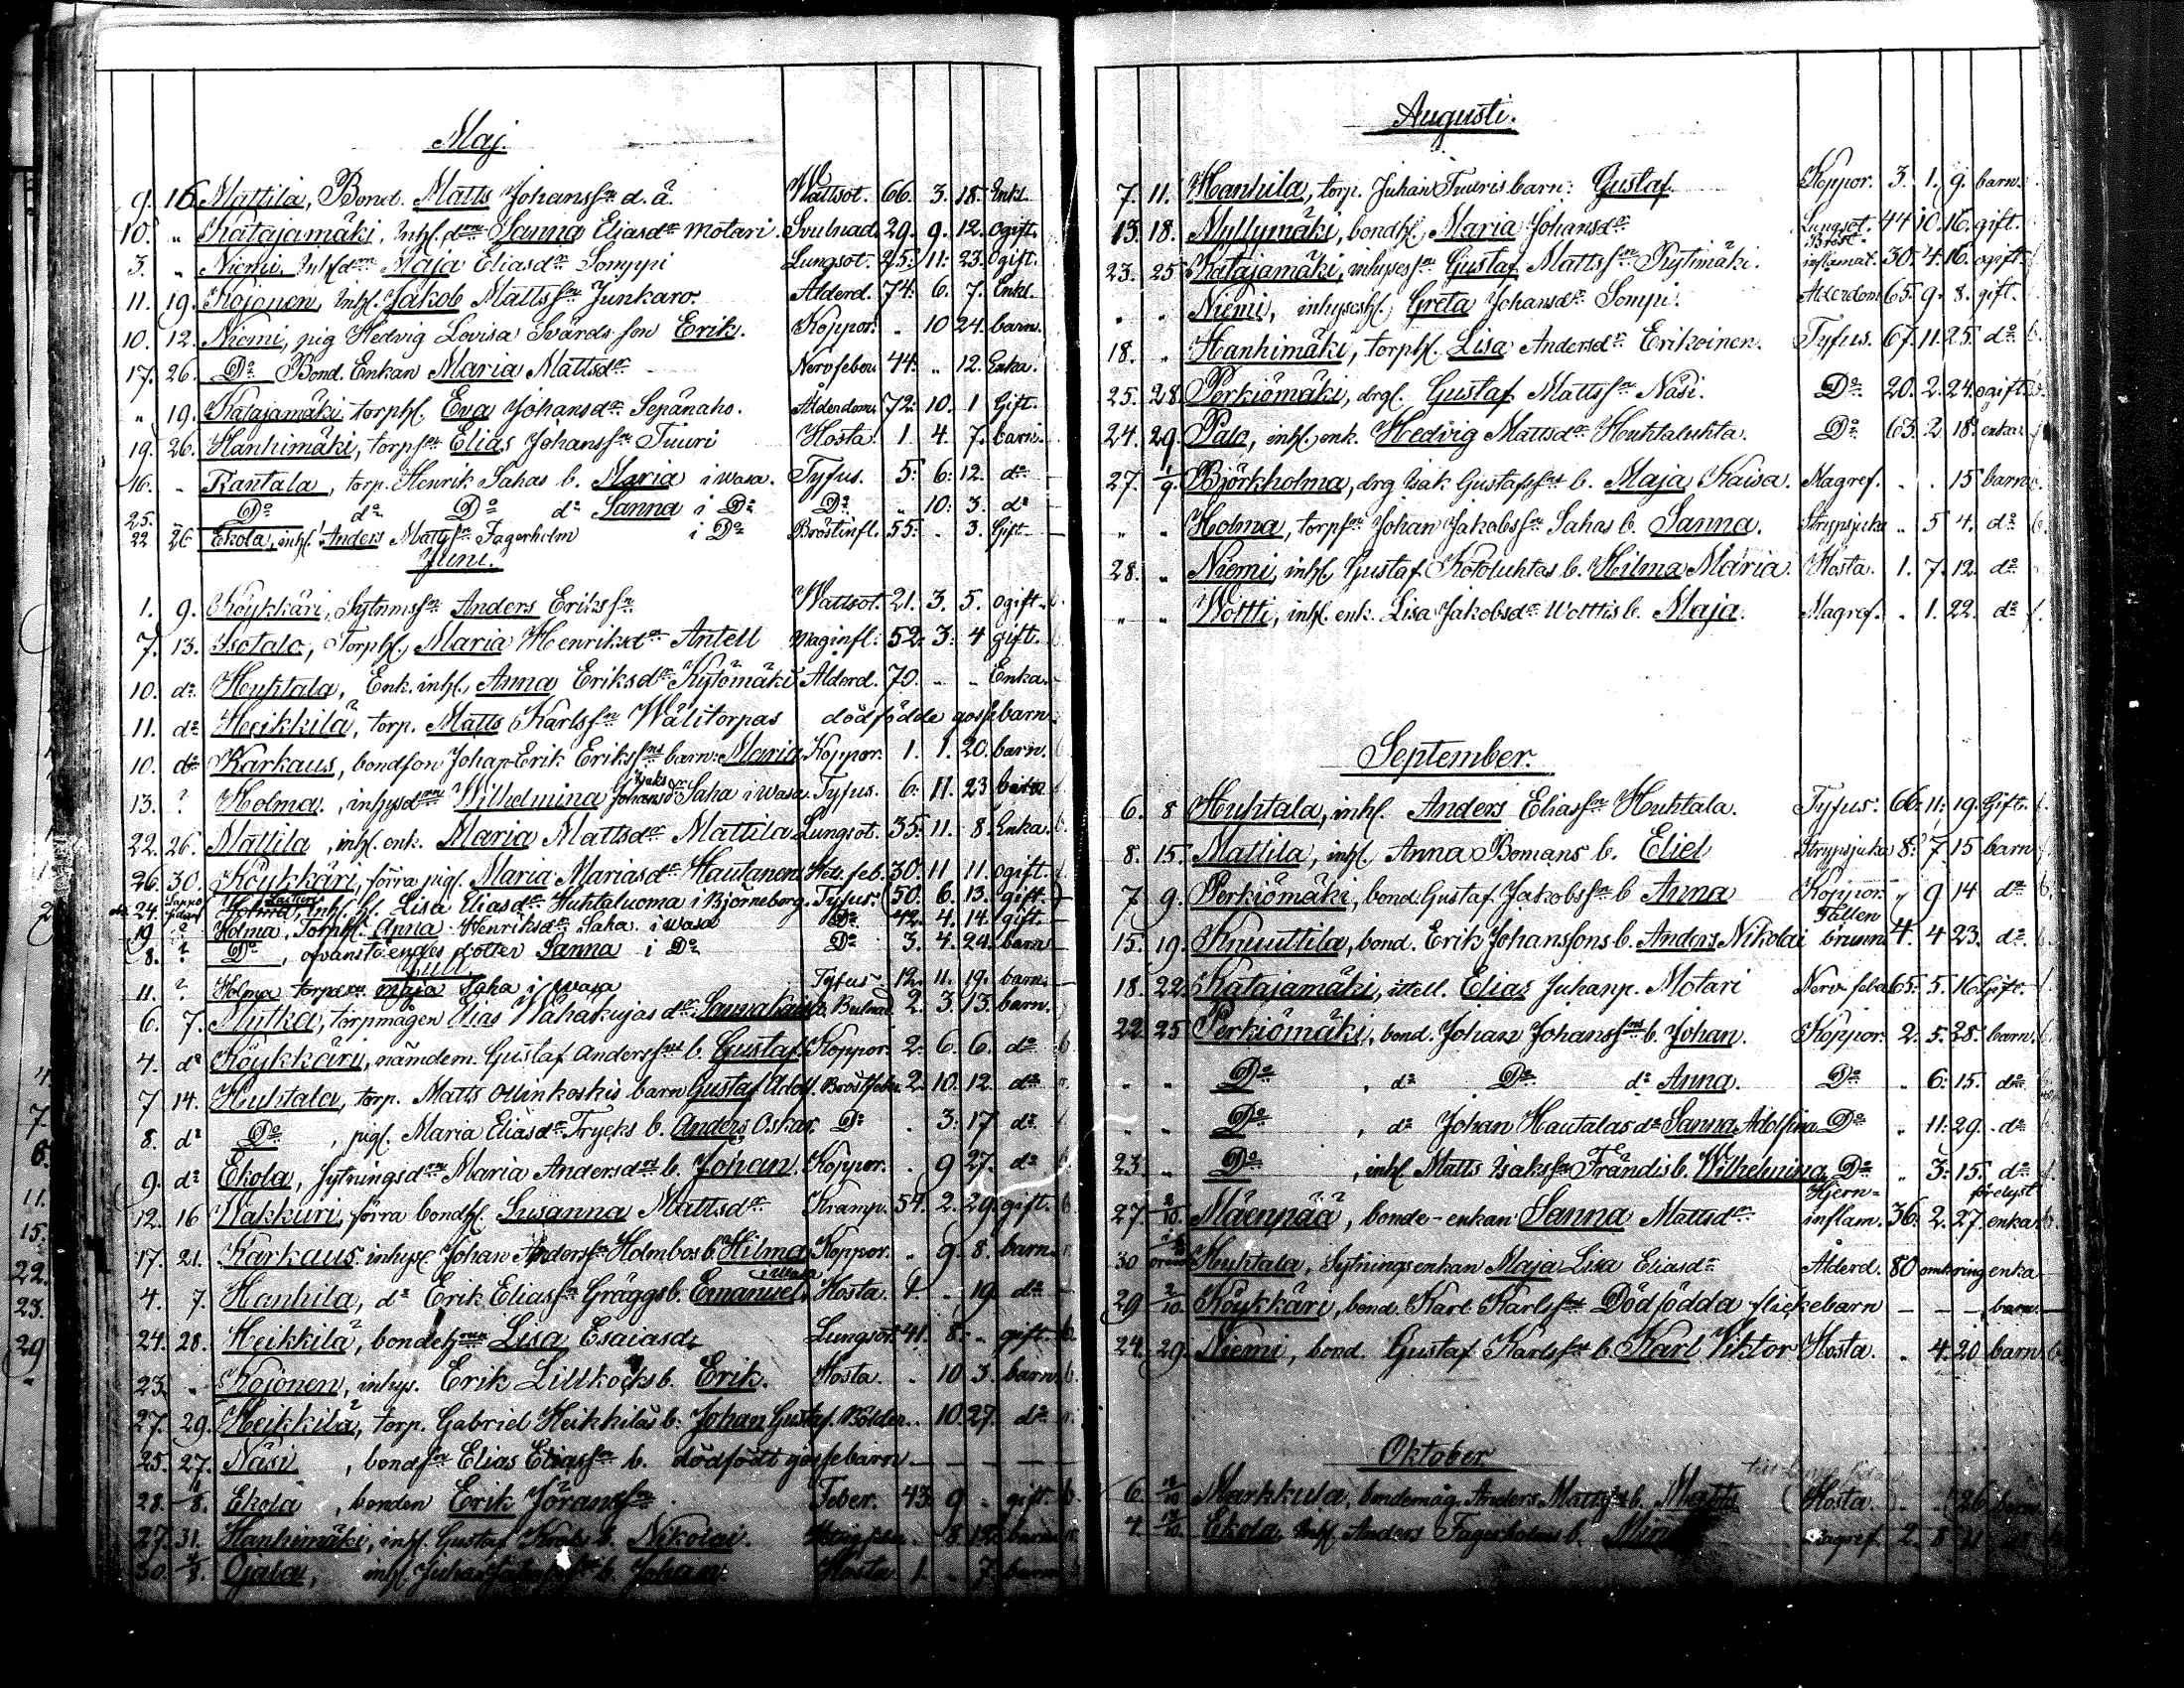 Maj.
9. 16. Mattila, Bond. Matts Johanss:n d. ä. Wattsot. 66. 3. 18. Enkl.
10. " Katajamäki, Inh. d:n Sanna Eliasd:r Motari. Svulnad. 29. 9. 12. Ogift.
3. " Niemi Inhd:n Maja Eliasd:r Somppi Lungsot. 25. 11. 23. Ogift.
11. 19. Kojonen, Inh. Jakob Mattss:n Junkaro. Ålderd. 74. 6. 7. Enkl.
10. 12. Niemi, pig Hedvig Lovisa Svärds son Erik. Koppor. " 10 24. barn.
17. 26. D:o Bond. Enkan Maria Mattsd:r Nervfeber. 44. " 12. Enka.
" 19. Katajamäki torph. Eva Johansd:r Sepänaho. Ålderdom. 72. 10. 1 Gift.
19. 26. Hanhimäki, torps:n Elias Johanss:n Tuuri Hosta. 1. 4. 7. barn.
16. - Rantala, torp. Henrik Sahas b. Maria i Wasa. Tyfus. 5. 6. 12. d:o
25. - D:o d:o D:o d:o Sanna i D:o D:o " 10. 3. d:o
22 26 Ekola, inh. Anders Mattss:n Fagerholm i D:o Bröstinfl. 55. " 3. Gift
Juni.
1. 9. Köykkäri, Sytnings:n Anders Erikss:n Wattsot. 21. 3. 5. Ogift.
7. 13. Isotalo, Torph. Maria Henriksd:r Antell Maginfl. 52. 3. 4 gift.
10. d:o Huhtala, Enk. inh. Anna Eriksd:r Kytömäki Ålderd. 70. " " Enka.
11. d:o Heikkilä, torp. Matts Karlss:n Wälitorpas dödfödde gossebarn.
10. d:o Karkaus, bondson Johan Erik Erikss:ns barn: Maria Koppor. 1. 1. 20. barn.
13. ? Holma, inhysd:n Wilhelmina Isaksd:r Saha i Wasa. Tyfus. 6. 11. 23 barn
22. 26. Mattila, inh. enk. Maria Mattsd:r Mattila Lungsot. 35. 11. 8. Enka.
26. 30. Köykkäri, förra pig. Maria Mariasd:r Hautanen Het. feb. 30. 11 11. ogift.
24. Holma, Inh. h. Lisa Eliasd:r Huhtaluoma i Björneborg. Tyfus. 50. 6. 13. gift.
19. ? Holma, Torph. Anna Henriksd:r Saha i Wasa D:o 42. 4. 14. gift.
8. ? D:o, ofvanståendes dotter Sanna i D:o D:o 3. 4. 24. barn
Juli
11. ? Holma torpd:n Maja Saha i Wasa Tyfus 12. 11. 19. barn.
6. 7. Mytka, torpmågen Elias Wähäkujas d:r Sanna Kaisa. Bulnad. 2. 3. 13. barn.
4. d:o Köykkäri, nämdem. Gustaf Anderss:ns b. Gustaf. Koppor. 2. 6. 6. d:o
7 14. Huhtala, torp. Matts Ollinkoskis barn Gustaf Adolf. Bröstfeber. 2. 10. 12. d:o
8. d:o D:o, pig. Maria Eliasd:r Trycks b. Anders Oskar. D:o " 3. 17 d:o
9. d:o Ekola, sytningsd:n Maria Andersd:rs b. Johan. Koppor. " 9 27. d:o
12. 16 Wakkuri, förra bondh. Susanna Mattsd:r Kramp. 54. 2. 29. gift.
17. 21. Karkaus inhys. Johan Anderss:n Holmbos b. Hilma Koppor. " 9. 8. barn.
4. 7. Hanhila, d:o Erik Eliass:n Gräggs b. Emanuel i Wasa. Hosta. 1 " 19. d:o
24. 28. Heikkilä, bondeh. Lisa Esaiasd:r Lungsot. 41. 8. " gift.
23. " Kojonen, inhys. Erik Lillkocks b. Erik. Hosta. " 10 3. barn.
27. 29. Heikkilä, torp. Gabriel Heikkiläs b. Johan Gustaf. Bölder. " 10. 27. d:o
25. 27. Näsi, bonds:n Elias Eliass:n b. dödfödt gossebarn
28. 1/8. Ekola, bonden Erik Jörans s:n Feber. 43. 9 " gift.
27. 31. Hanhimäki, inh. Gustaf b. Nikolai. 8. barn
30. 4/8. Ojala, inh. Juhan b. Johan. Hosta 1. " 7. barn
Augusti.
7. 11. Hanhila, torp. Juhan Tuuris barn: Gustaf. Koppor. 3. 1. 9. barn.
13. 18. Myllymäki, bondh. Maria Johansd:r Lungsot. 44 10. 16. gift.
23. 25. Katajamäki, inhyses s:n Gustaf Mattss:n Rytimäki. Bröst-inflamat. 30. 4. 16. ogift
" " Niemi, inhysesh. Greta Johansd:r Sompi. Ålderdom 65. 9. 8. gift.
18. " Hanhimäki, torph. Lisa Andersd:r Erikoinen. Tyfus. 67. 11. 25. d:o
25. 28. Perkiömäki, drg. Gustaf Mattss:n Näsi. D:o 20. 2. 24. ogift.
24. 29. Palo, inh. enk. Hedvig Mattsd:r Huhtaluhta. D:o 63. 2 18. enka.
27. 1/9. Björkholma, drg Isak Gustafss:ns b. Maja Kaisa. Magref. " " 15 barn
" " Holma, torps:n Johan Jakobss:n Sahas b. Sanna. Strypsjuka " 5 4. d:o
28. " Niemi, inh. Gustaf Kotoluhtas b. Hilma Maria. Hosta. 1. 7. 12. d:o
" " Woltti, inh. enk. Lisa Jakobsd:r Wolttis b. Maja. Magref. " 1. 22. d:o
September.
6. 8 Huhtala, inh. Anders Eliass:n Huhtala. Tyfus. 66. 11. 19. Gift.
8. 15. Mattila, inh. Anna Bomans b. Eliel Strypsjuka 8. 7. 15 barn
7 9. Perkiömäki, bond. Gustaf Jakobss:n b Anna Koppor. " 9 14 d:o
15. 19. Knuuttila, bond. Erik Johanssons b. Anders Nikolai Fallen brunn 4. 4 23. d:o
18. 22. Katajamäki, Elias Juhanp. Motari Nerv feber 65. 5. 16. Gift.
22 25 Perkiömäki, bond. Johan Johanss:ns b. Johan. Koppor. 2. 5. 28. barn.
" " D:o, d:o D:o d:o Anna. D:o " 6. 15. d:o
" " D:o, d:o Johan Hautalas d:r Sanna Adolfina D:o " 11. 29. d:o
23 " D:o, inh Matts Isakss:n Frändis b. Wilhelmina D:o " 3. 15. d:o
27. 2/10. Mäenpää, bonde-enkan Sanna Mattsd:r Hjern-inflam. 36. 2. 27. enka.
30 Huhtala, Sytningsenkan Maja Lisa Eliasd:r Ålderd. 80 omkring enka
29 2/10. Köykkäri, bond. Karl Karlss:ns Dödfödda flickebarn - - - barn.
24. 29. Niemi, bond. Gustaf Karlss:ns b. Karl Viktor Hosta. " 4. 20 barn
Oktober
6. Markkula, bondemåg. Anders Mattss:ns b. Matts Hosta. 26
4. Ekola, Inh. Anders Fagerholms b. Magref. 2. 8